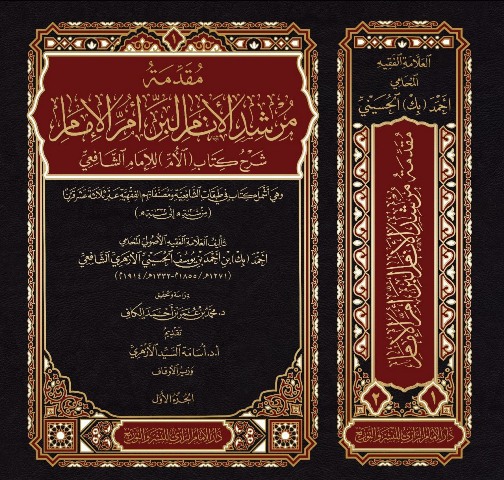 ١
مقدمة
مرشد الأنام لبر أم الإمام
شرح كتاب (الأم) للإمام الشافعي
وهي أشمل كتاب في طبقات الشافعية ومصنفاتهم الفقهية عبر ثلاثة عشر قرنا
تأليف العلامة الفقيه الأصولي المحامي
أحمد (بك) ابن أحمد بن يوسف الحسيني الأزهري الشافعي
(١٢٧١هـ/١٨٥٥م-١٣٣٢هـ/١٩١٤م)
دراسة وتحقيق
د. محمد بن عمر بن أحمد الكاف
تقديم
أ.د. أسامة السيد الأزهري
وزير الأوقاف
الجزء الأول
دار الإمام الرازي للنشر والتوزيع
العلامة الفقيه
المحامي
أحمد (بك) الحسيني
مقدمة مرشد الأنام لبر أم الإمام
١ ٢
دار الإمام الرازي للنشر والتوزيع